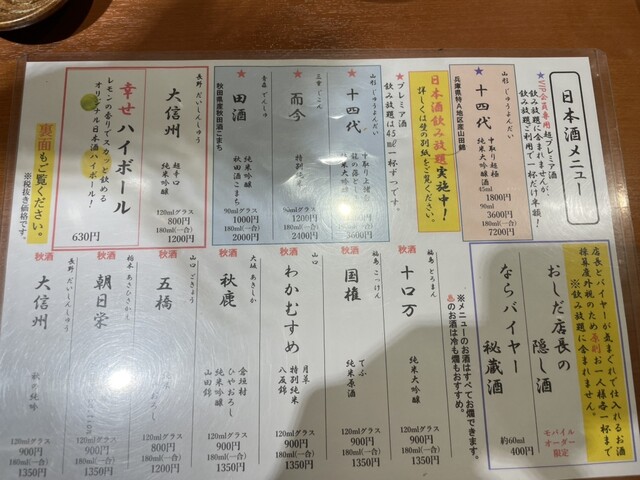 日本酒メニュー
★VIP会員専用 超プレミア酒
飲み放題に含まれませんが、
飲み放題ご利用で一杯だけ半額！
★
山形 じゅうよんだい
十四代
中取り超極
純米大吟醸
兵庫県特A地区産山田錦
45ml
1800円
90ml
3600円
180ml(一合)
7200円
日本酒飲み放題実施中！
詳しくは壁の別紙をご覧ください。
★プレミア酒
飲み放題は45ml一杯ずつです。
★
山形 じゅうよんだい
十四代
中取り上諸白
龍の落とし子
★
三重 じこん
而今
特別純米
★
青森 でんしゅ
田酒
純米吟醸
秋田酒こまち
秋田県産秋田酒こまち
90mlグラス
1000円
180ml(一合)
2000円
1200円
2400円
長野 だいしんしゅう
大信州
超辛口
純米吟醸
120mlグラス
800円
180ml(一合)
1200円
幸せハイボール
レモンの香りでスカッと飲める
オリジナル日本酒ハイボール！
630円
裏面もご覧ください。
※税抜き価格です。
店長とバイヤーが気まぐれで仕入れるお酒
採算度外視のため原則お一人様各一杯まで
※飲み放題に含まれません。
おしだ店長の
隠し酒
ならバイヤー
秘蔵酒
約60ml
400円
モバイル
オーダー
限定
※メニューのお酒はすべてお燗できます。
のお酒は冷も燗もおすすめ。
福島 とろまん
十ロ万
純米大吟醸
120mlグラス
900円
180ml(一合)
1350円
秋酒
福島 こっけん
国権
てふ
純米原酒
120mlグラス
900円
180ml(一合)
1350円
秋酒
山口
わかむすめ
月草
特別純米
八反錦
120mlグラス
900円
180ml(一合)
1350円
秋酒
大阪 あきしか
秋鹿
倉垣村
ひやおろし
純米吟醸
山田錦
120mlグラス
900円
180ml(一合)
1350円
秋酒
山口 ごきょう
五橋
120mlグラス
800円
180ml(一合)
1200円
秋酒
栃木 あさひさかえ
朝日栄
120mlグラス
900円
180ml(一合)
1350円
秋酒
長野 だいしんしゅう
大信州
秋の純吟
120mlグラス
900円
180ml(一合)
1350円